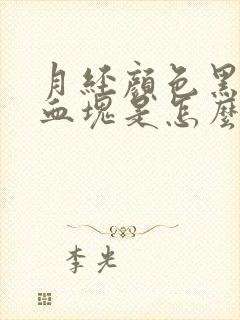 月经颜色黑
血塊是怎麼
李光